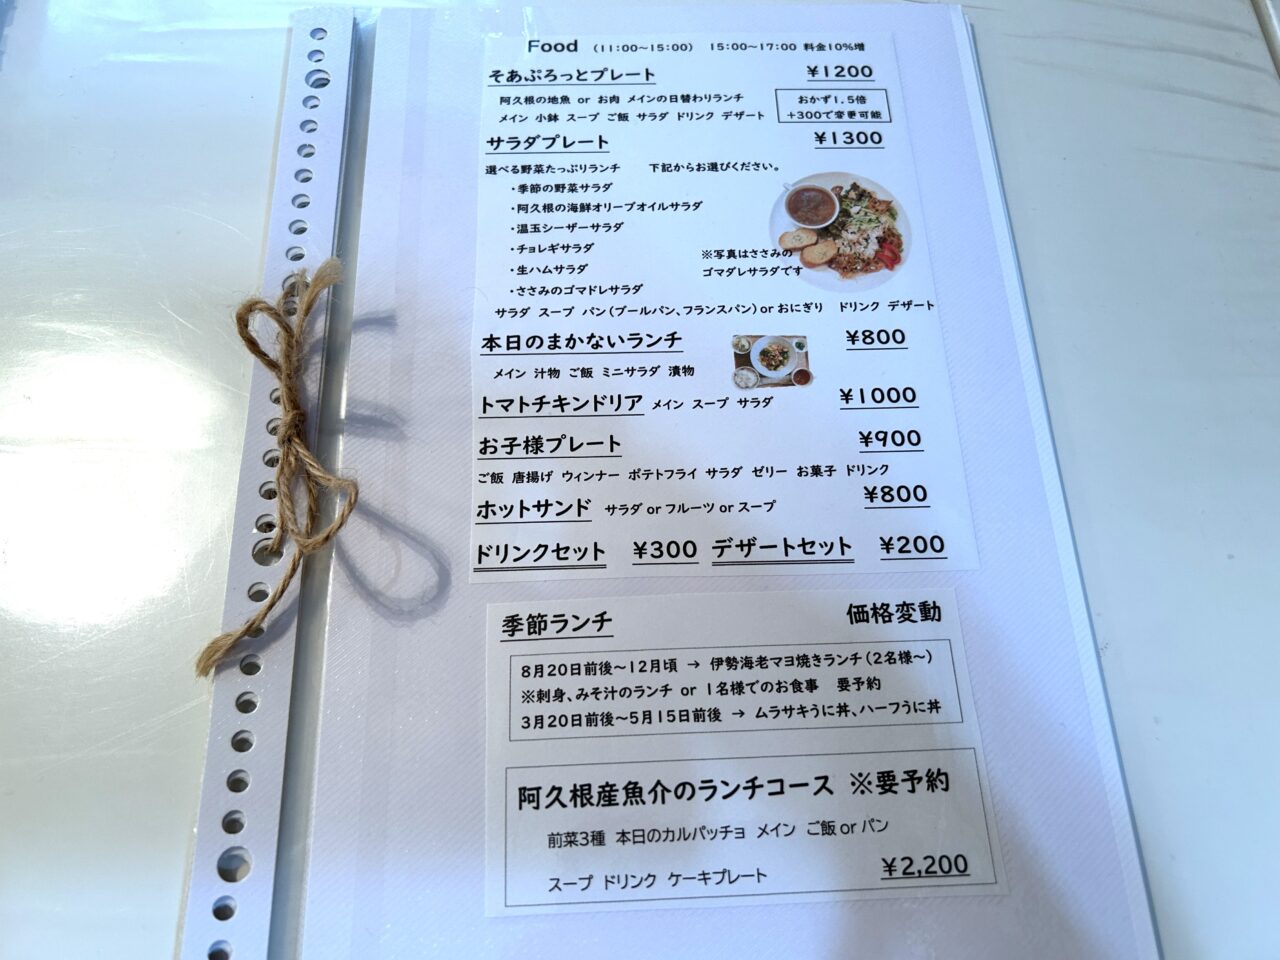 Food （11:00～15:00） 15:00～17:00 料金10%増
そあぷろっとプレート ¥1200
阿久根の地魚 or お肉 メインの日替わりランチ
メイン 小鉢 スープ ご飯 サラダ ドリンク デザート
おかず1.5倍
+300で変更可能
サラダプレート ¥1300
選べる野菜たっぷりランチ 下記からお選びください。
・季節の野菜サラダ
・阿久根の海鮮オリーブオイルサラダ
・温玉シーザーサラダ
・チョレギサラダ
・生ハムサラダ
・ささみのゴマドレサラダ
※写真はささみの
ゴマダレサラダです
サラダ スープ パン（ブールパン、フランスパン）or おにぎり ドリンク デザート
本日のまかないランチ ¥800
メイン 汁物 ご飯 ミニサラダ 漬物
トマトチキンドリア メイン スープ サラダ ¥1000
お子様プレート ¥900
ご飯 唐揚げ ウィンナー ポテトフライ サラダ ゼリー お菓子 ドリンク
ホットサンド サラダ or フルーツ or スープ ¥800
ドリンクセット ¥300 デザートセット ¥200
季節ランチ 価格変動
8月20日前後～12月頃 → 伊勢海老マヨ焼きランチ（2名様～）
※刺身、みそ汁のランチ or 1名様でのお食事 要予約
3月20日前後～5月15日前後 → ムラサキうに丼、ハーフうに丼
阿久根産魚介のランチコース ※要予約
前菜3種 本日のカルパッチョ メイン ご飯 or パン
スープ ドリンク ケーキプレート ¥2,200